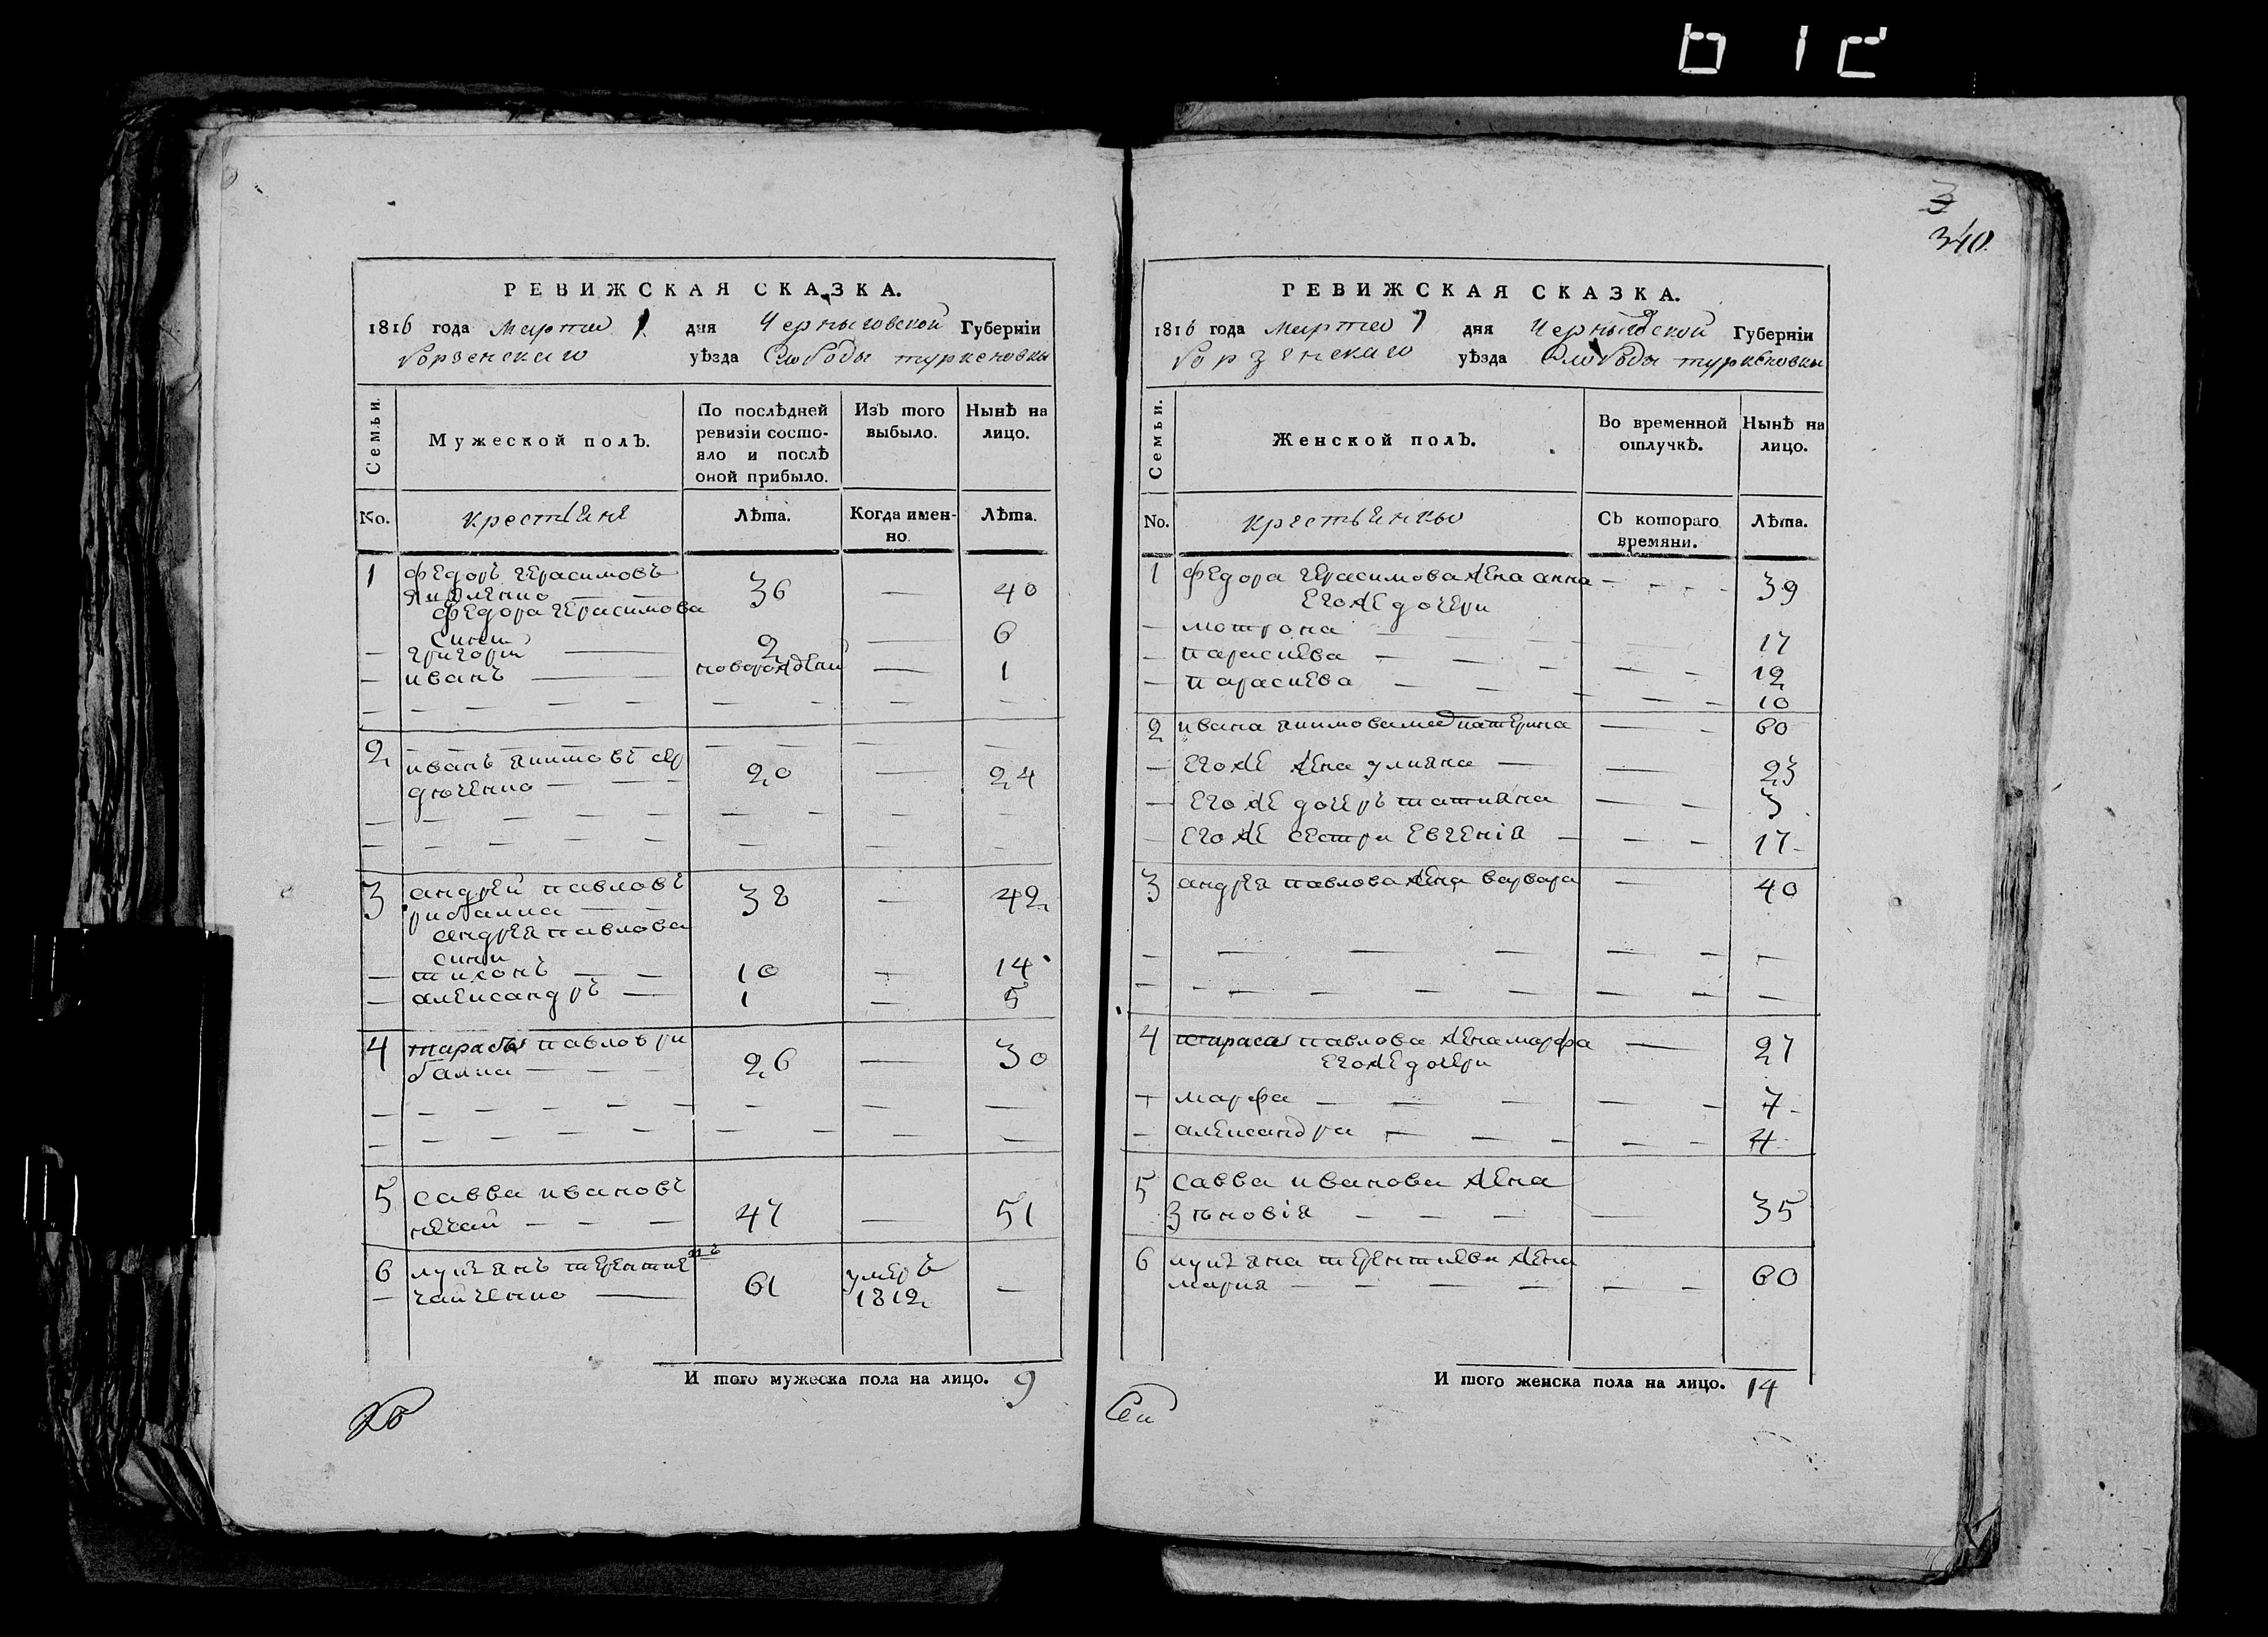 3
340.
РЕВИЖСКАЯ СКАЗКА.
1816 года марта 1 дня Черныговской Губерніи
Борзенскаго уѣзда Слободы туркеновки
Семьи.
Мужеской полъ.
По послѣдней ревизіи состояло и послѣ оной прибыло.
Изъ того выбыло.
Нынѣ на лицо.
No. крестьяне Лѣта. Когда именно. Лѣта.
1 федоръ герасимовъ
36 — 40
федора герасимова
сини
— григорий — 2 — 6
— иванъ — новорожденій — 1
2 иванъ якимовъ сер
дюченко — 20 — 24
3 андрей павловъ
рибалка — 38 — 42
андрея павлова
сини
— тихонъ — 10 — 14
— александръ — 1 — 5
4 тарасъ павлов ри
балка — 26 — 30
5 савва ивановъ
нечай — 47 — 51
6 лукянъ терентиевъ
— чайченко — 61 умеръ 1812 —
И того мужеска пола на лицо. 9
РЕВИЖСКАЯ СКАЗКА.
1816 года марта 1 дня Черныговской Губерніи
Борзенскаго уѣзда Слободы туркеновки
Семьи.
Женской полъ.
Во временной отлучкѣ.
Нынѣ на лицо.
No. крестьянки Съ котораго времяни. Лѣта.
1 федора герасимова жена анна — 39
его же дочери
— мотрона — 17
— параскева — 12
— параскева — 10
2 ивана якимова мат катерина — 60
— его же жена улияна — 23
— его же дочеръ татияна — 3
— его же сестра евгенія — 17
3 андрея павлова жена варвара — 40
4 тараса павлова жена марфа — 27
его же дочери
— марфа — 7
— александра — 4
5 савва иванова жена
зѣновія — 35
6 лукяна терентиева жена
мария — 60
И того женска пола на лицо. 14